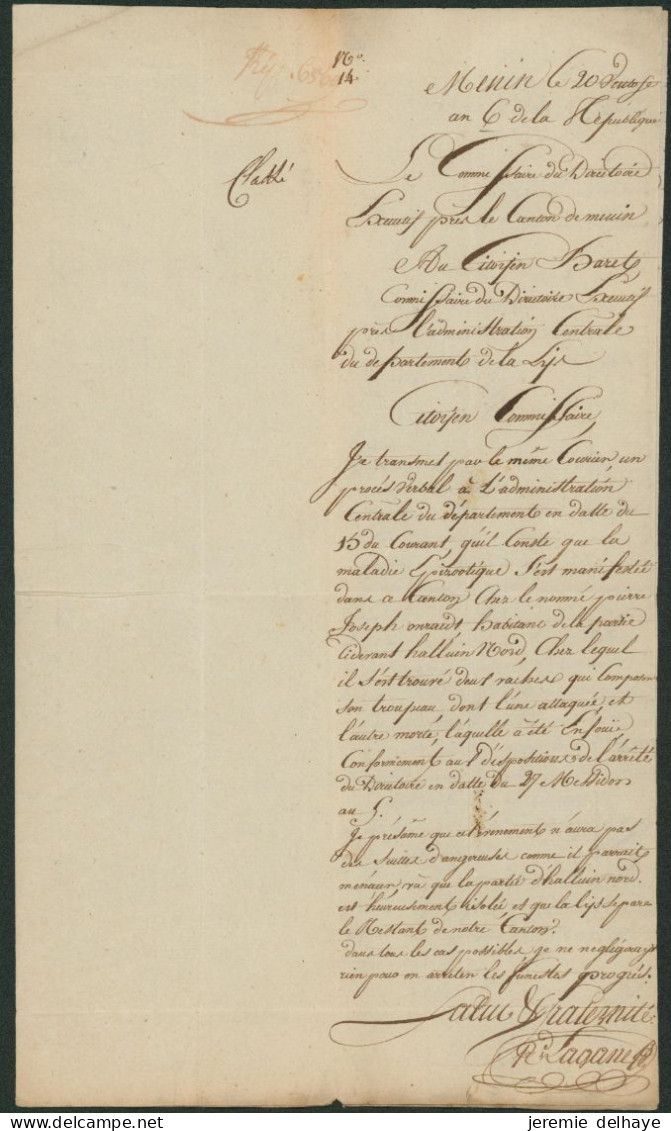 N.o
14.
Menin le 20 Ventose
an 6 de la République
Classé
Le Commissaire du Directoire
Executif près le Canton de menin
Au Citoyen Baret
Commissaire du Directoire Executif
près l'administration Centrale
du departement de la Lys
Citoyen Commissaire
Je transmet par le même Courier, un
procès verbal à L'administration
Centrale du département en datte du
15 du Courant, qu'il Conste que la
maladie Epizootique s'est manifestée
dans ce Canton Chez le nommé pierre
Joseph onraedt habitant de la partie
ciderant halluin Nord, Chez lequel
il s'est trouvé deux vaches qui Composent
son troupeau dont l'une attaquée, et
l'autre morte, laquelle a été Enfouïe
Conformement aux dispositions de l'arrêté
du Directoire en datte du 27 Messidor
an 5.
Je présume que cet évènement n'aura pas
des suittes dangereuses comme il parrait
menacer, vu que la partie d'halluin nord.
est heureusement isolée et que la lijs separe
le Restant de notre Canton.
dans tous les cas possibles, je ne negligerai
rien pour en arreter les funestes progrès.
Salut & fraternité
jeremie delhaye